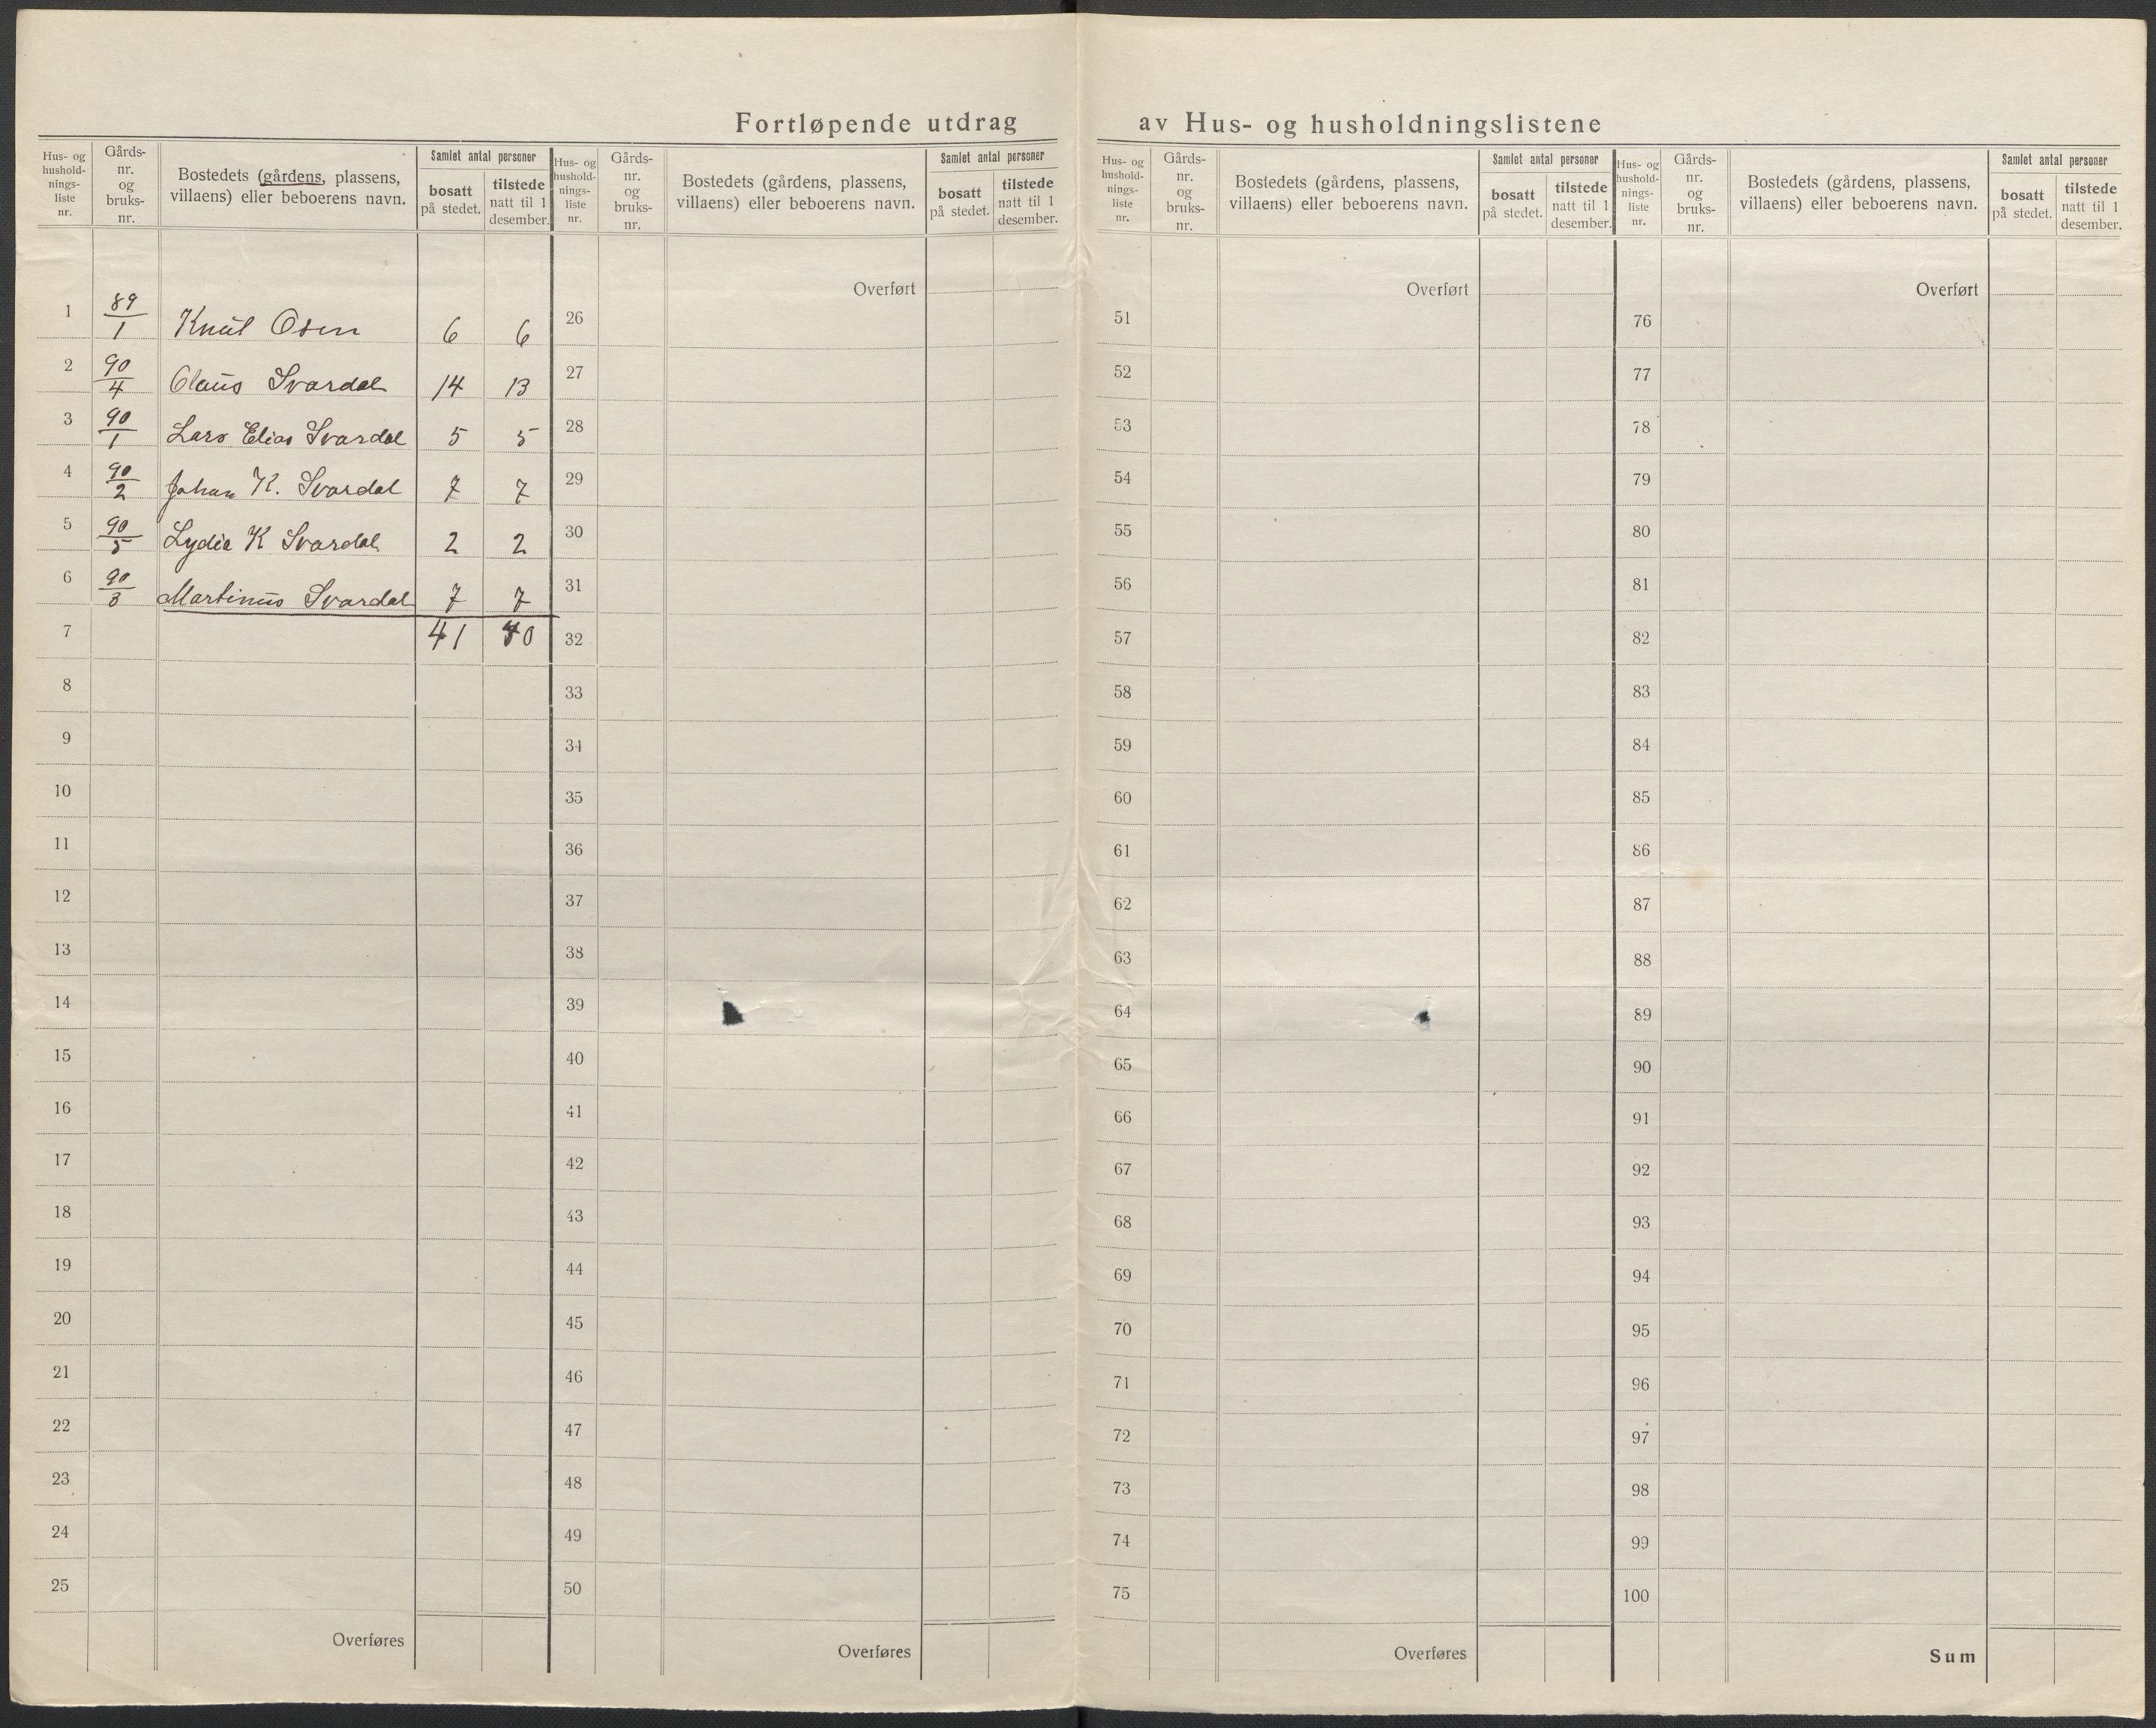 Fortløpende utdrag av Hus- og husholdningslistene
Hus- og hushold-nings-liste nr.
Gårds-nr. og bruks-nr.
Bostedets (gårdens, plassens, villaens) eller beboerens navn.
Samlet antal personer
bosatt på stedet.
tilstede natt til 1 desember.
1 89/1 Knut Osen 6 6
2 90/4 Olaus Svardal 14 13
3 90/1 Lars Elias Svardal 5 5
4 90/2 Johan K. Svardal 7 7
5 90/5 Lydia K Svardal 2 2
6 90/3 Martinus Svardal 7 7
7 41 40
8
9
10
11
12
13
14
15
16
17
18
19
20
21
22
23
24
25
Overføres
Hus- og hushold-nings-liste nr.
Gårds-nr. og bruks-nr.
Bostedets (gårdens, plassens, villaens) eller beboerens navn.
Samlet antal personer
bosatt på stedet.
tilstede natt til 1 desember.
Overført
26
27
28
29
30
31
32
33
34
35
36
37
38
39
40
41
42
43
44
45
46
47
48
49
50
Overføres
Hus- og hushold-nings-liste nr.
Gårds-nr. og bruks-nr.
Bostedets (gårdens, plassens, villaens) eller beboerens navn.
Samlet antal personer
bosatt på stedet.
tilstede natt til 1 desember.
Overført
51
52
53
54
55
56
57
58
59
60
61
62
63
64
65
66
67
68
69
70
71
72
73
74
75
Overføres
Hus- og hushold-nings-liste nr.
Gårds-nr. og bruks-nr.
Bostedets (gårdens, plassens, villaens) eller beboerens navn.
Samlet antal personer
bosatt på stedet.
tilstede natt til 1 desember.
Overført
76
77
78
79
80
81
82
83
84
85
86
87
88
89
90
91
92
93
94
95
96
97
98
99
100
Sum